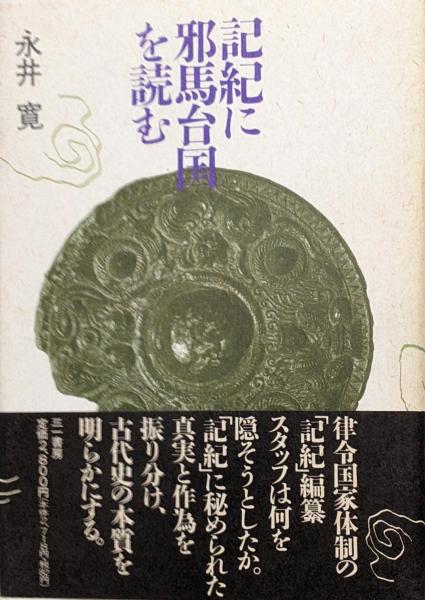 記紀に
邪馬台国
を読む
永井 寛
律令国家体制の
「記紀」編纂
スタッフは何を
隠そうとしたか。
「記紀」に秘められた
真実と作為を
振り分け、
古代史の本質を
明らかにする。
三一書房
定価2,800円